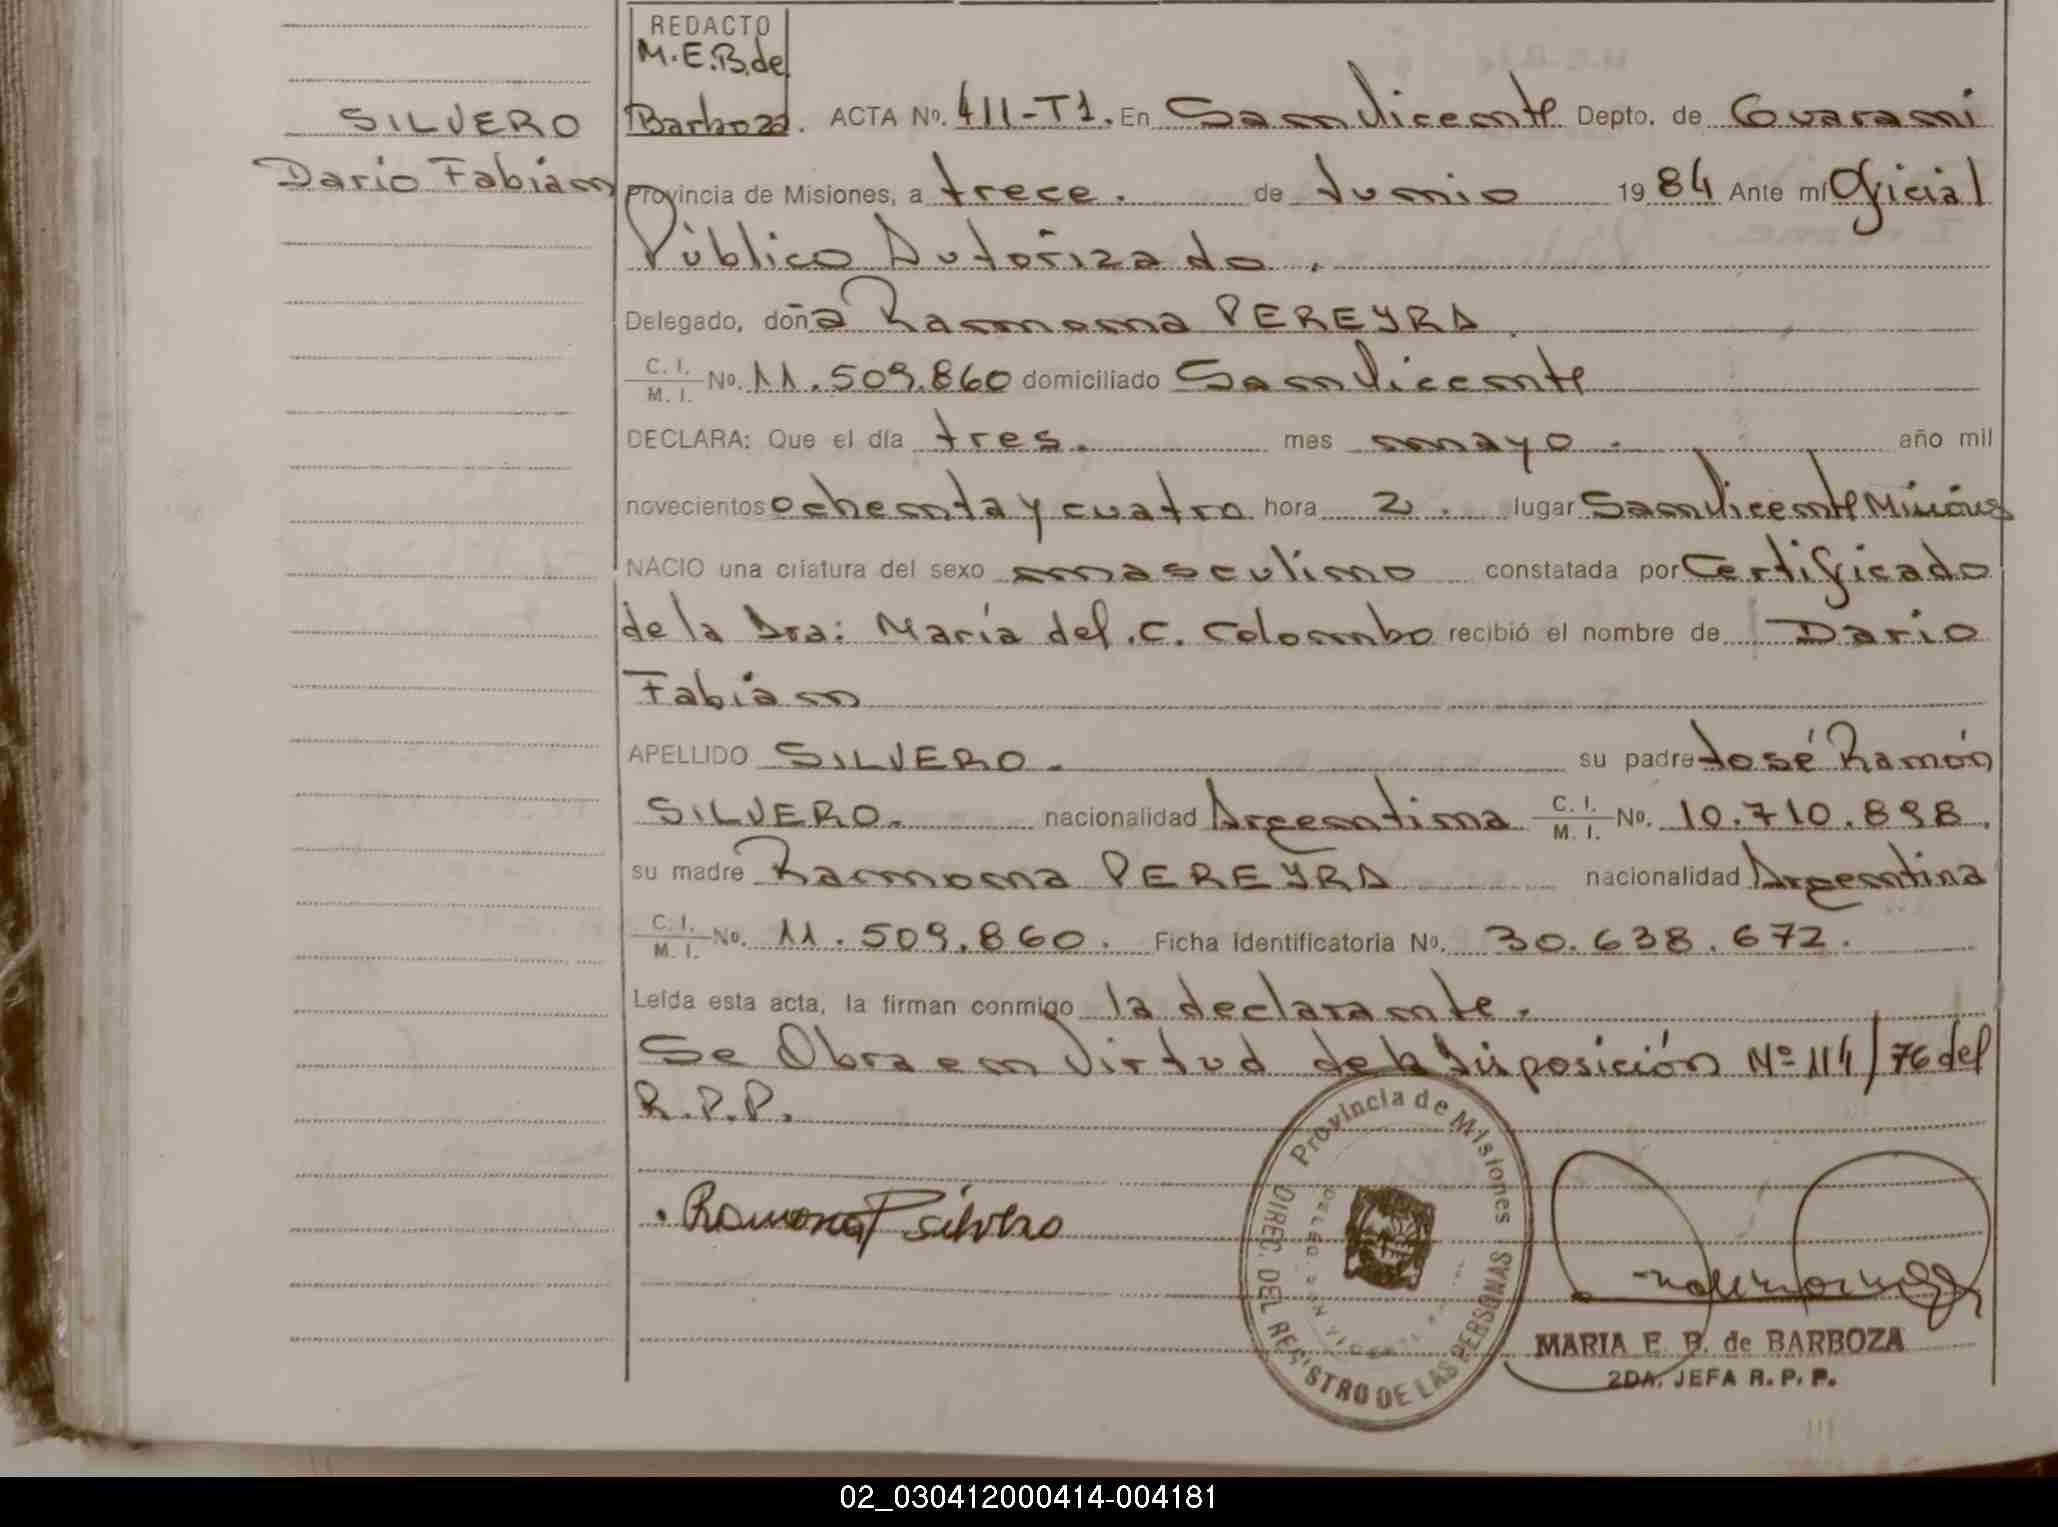 REDACTO
M.E.B.de
Barboza.
SILVERO
Dario Fabián
ACTA Nº. 411-T1. En San Vicente Depto. de Guaraní
Provincia de Misiones, a trece. de Junio 1984 Ante mí Oficial
Público Autorizado.
Delegado, doña Ramona PEREYRA
C. I. / M. I. Nº. 11.509.860 domiciliado San Vicente
DECLARA: Que el día tres. mes mayo. año mil
novecientos ochenta y cuatro hora 2. lugar San Vicente Misiones
NACIO una criatura del sexo masculino constatada por Certificado
de la Dra: María del .C. Colombo recibió el nombre de Dario
Fabián
APELLIDO SILVERO. su padre José Ramón
SILVERO. nacionalidad Argentina C. I. / M. I. Nº. 10.710.898.
su madre Ramona PEREYRA nacionalidad Argentina
C. I. / M. I. Nº. 11.509.860. Ficha Identificatoria Nº. 30.638.672.
Leída esta acta, la firman conmigo la declarante.
Se Obra en Virtud de la Disposición Nº 114/76 del
R.P.P.
Ramona P Silvero
Provincia de Misiones
DIREC. DEL REGISTRO DE LAS PERSONAS
MARIA E. B. de BARBOZA
2DA. JEFA R. P. P.
02_030412000414-004181